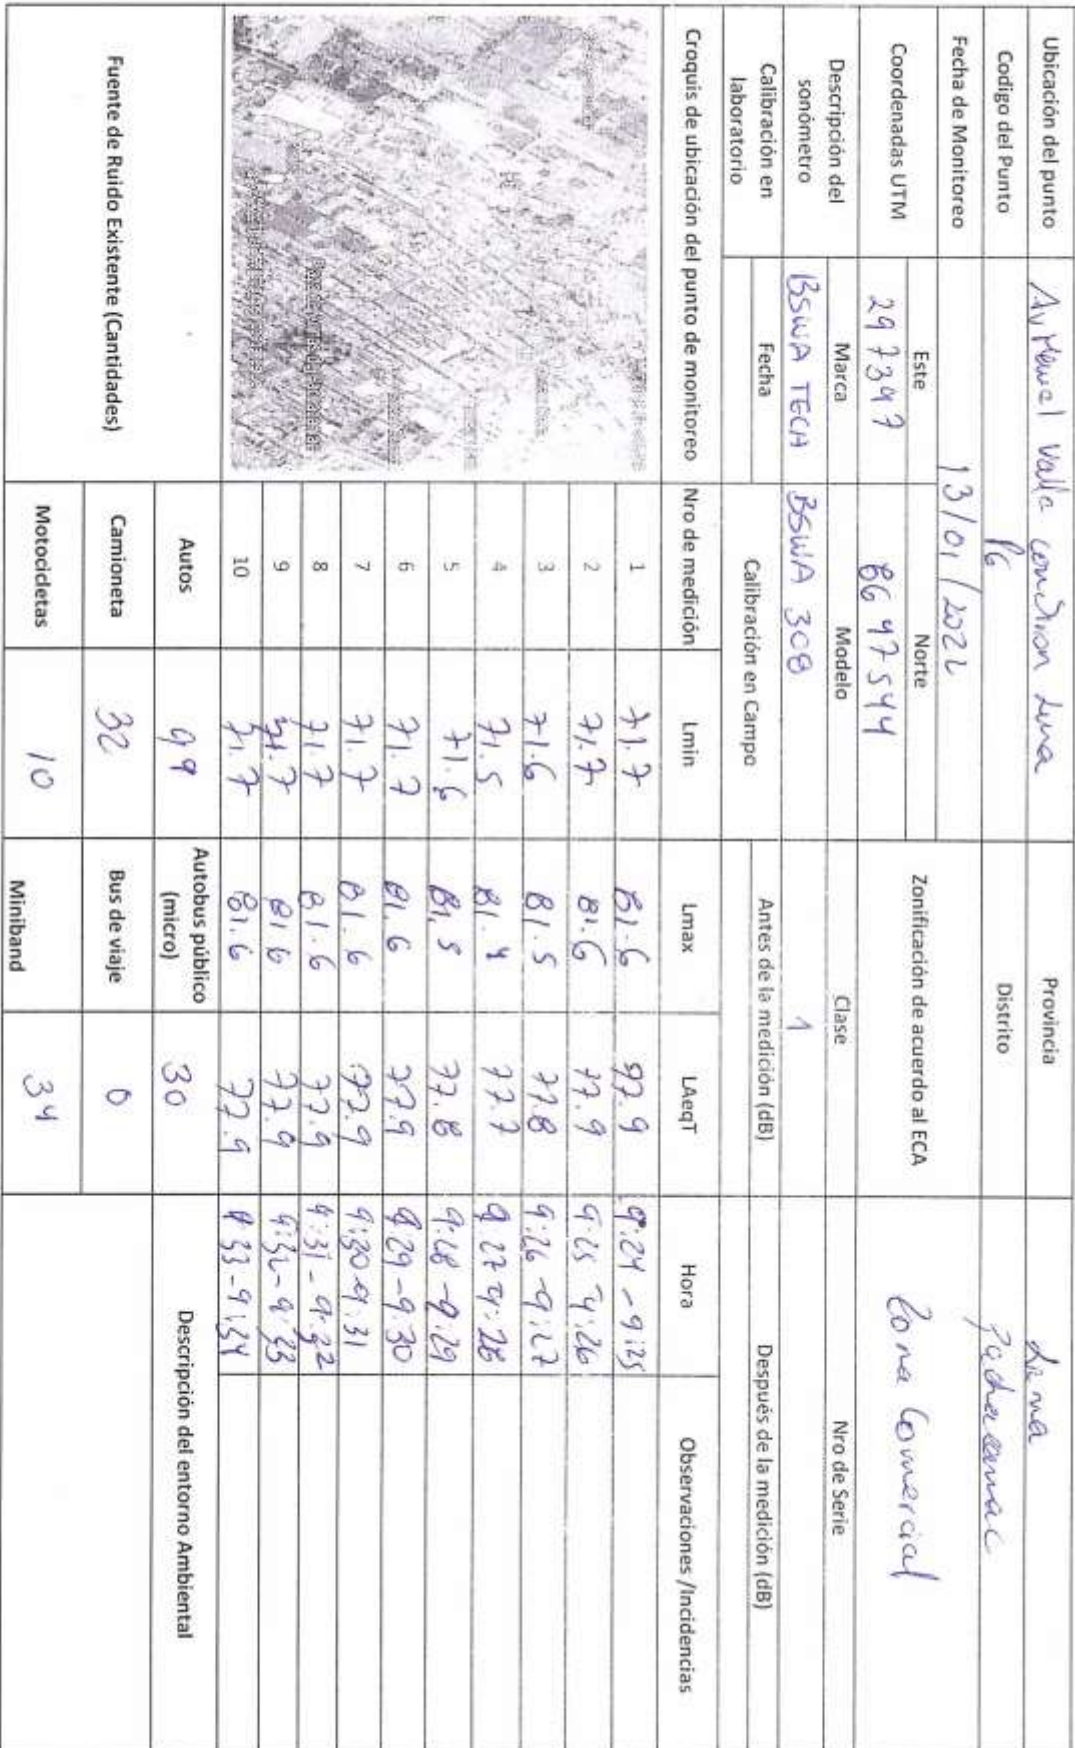 Ubicación del punto Av Manuel Valle con Jiron Luna Provincia Lima
Codigo del Punto P6 Distrito Pachacamac
Fecha de Monitoreo 13/01/2022
Coordenadas UTM Este Norte Zonificación de acuerdo al ECA Zona Comercial
297347 8647544
Descripción del sonómetro Marca Modelo Clase Nro de Serie
BSWA TECH BSWA 308 1
Calibración en laboratorio Fecha Calibración en Campo Antes de la medición (dB) Después de la medición (dB)
Croquis de ubicación del punto de monitoreo Nro de medición Lmin Lmax LAeqT Hora Observaciones /Incidencias
1 71.7 81.6 97.9 9:24 - 9:25
2 71.7 81.6 77.9 9:25 - 9:26
3 71.6 81.5 77.8 9:26 - 9:27
4 71.5 81.4 77.7 9:27 9:28
5 71.6 81.5 77.8 9:28 - 9:29
6 71.7 81.6 77.9 9:29 - 9:30
7 71.7 81.6 77.9 9:30 - 9:31
8 71.7 81.6 77.9 9:31 - 9:32
9 71.7 81.6 77.9 9:32 - 9:33
10 71.7 81.6 77.9 9:33 - 9:34
Fuente de Ruido Existente (Cantidades) Autos 99 Autobus público (micro) 30 Descripción del entorno Ambiental
Camioneta 32 Bus de viaje 0
Motocicletas 10 Miniband 34